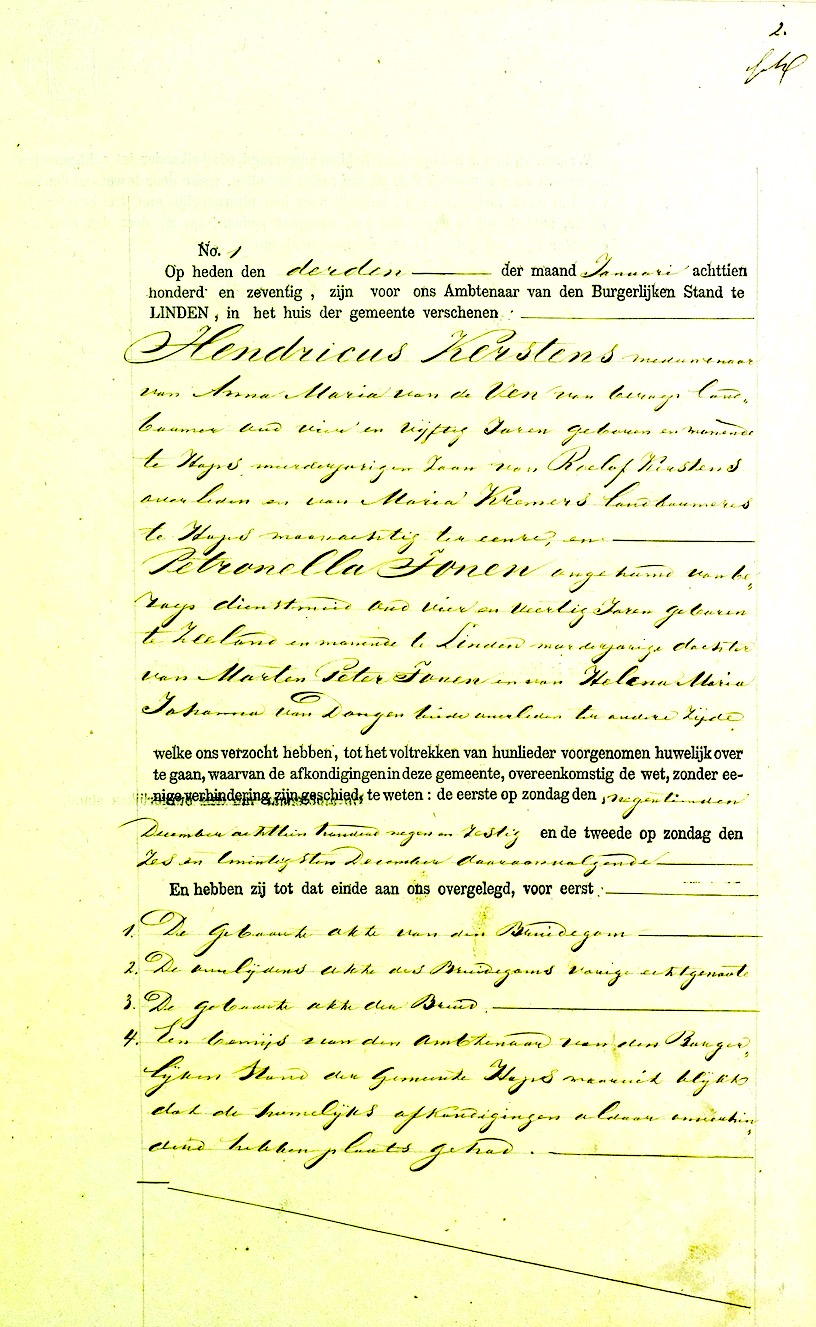 2.
No. 1
Op heden den derden der maand Januari achttien
honderd en zeventig, zijn voor ons Ambtenaar van den Burgerlijken Stand te
LINDEN, in het huis der gemeente verschenen :
Hendricus Kerstens weduwenaar
van Anna Maria van de Ven van beroep land„
bouwer oud vier en vijftig Jaren geboren en wonende
te Haps meerderjarigen Zoon van Roelof Kerstens
overleden en van Maria Kremers landbouweres
te Haps woonachtig ter eenre, en
Petronella Fonen ongehuwd van be„
roep dienstmeid oud vier en veertig Jaren geboren
te Zeeland en wonende te Linden meerderjarige dochter
van Marten Peter Fonen en van Helena Maria
Johanna van Dongen beide overleden ter andere Zijde
welke ons verzocht hebben, tot het voltrekken van hunlieder voorgenomen huwelijk over
te gaan, waarvan de afkondigingen in deze gemeente, overeenkomstig de wet, zonder ee-
nige verhindering zijn geschied, te weten : de eerste op zondag den negentienden
December achttien honderd negen en Zestig en de tweede op zondag den
Zes en twintigsten December daaraanvolgende
En hebben zij tot dat einde aan ons overgelegd, voor eerst :
1. De geboorte akte van den Bruidegom
2. De overlijdens akte des Bruidegoms vorige echtgenoote
3. De geboorte akte der Bruid.
4. Een bewijs van den Ambtenaar van den Burger„
lijken Stand der Gemeente Haps waaruit blijkt
dat de huwelijks afkondigingen aldaar onverhin„
derd hebben plaats gehad.